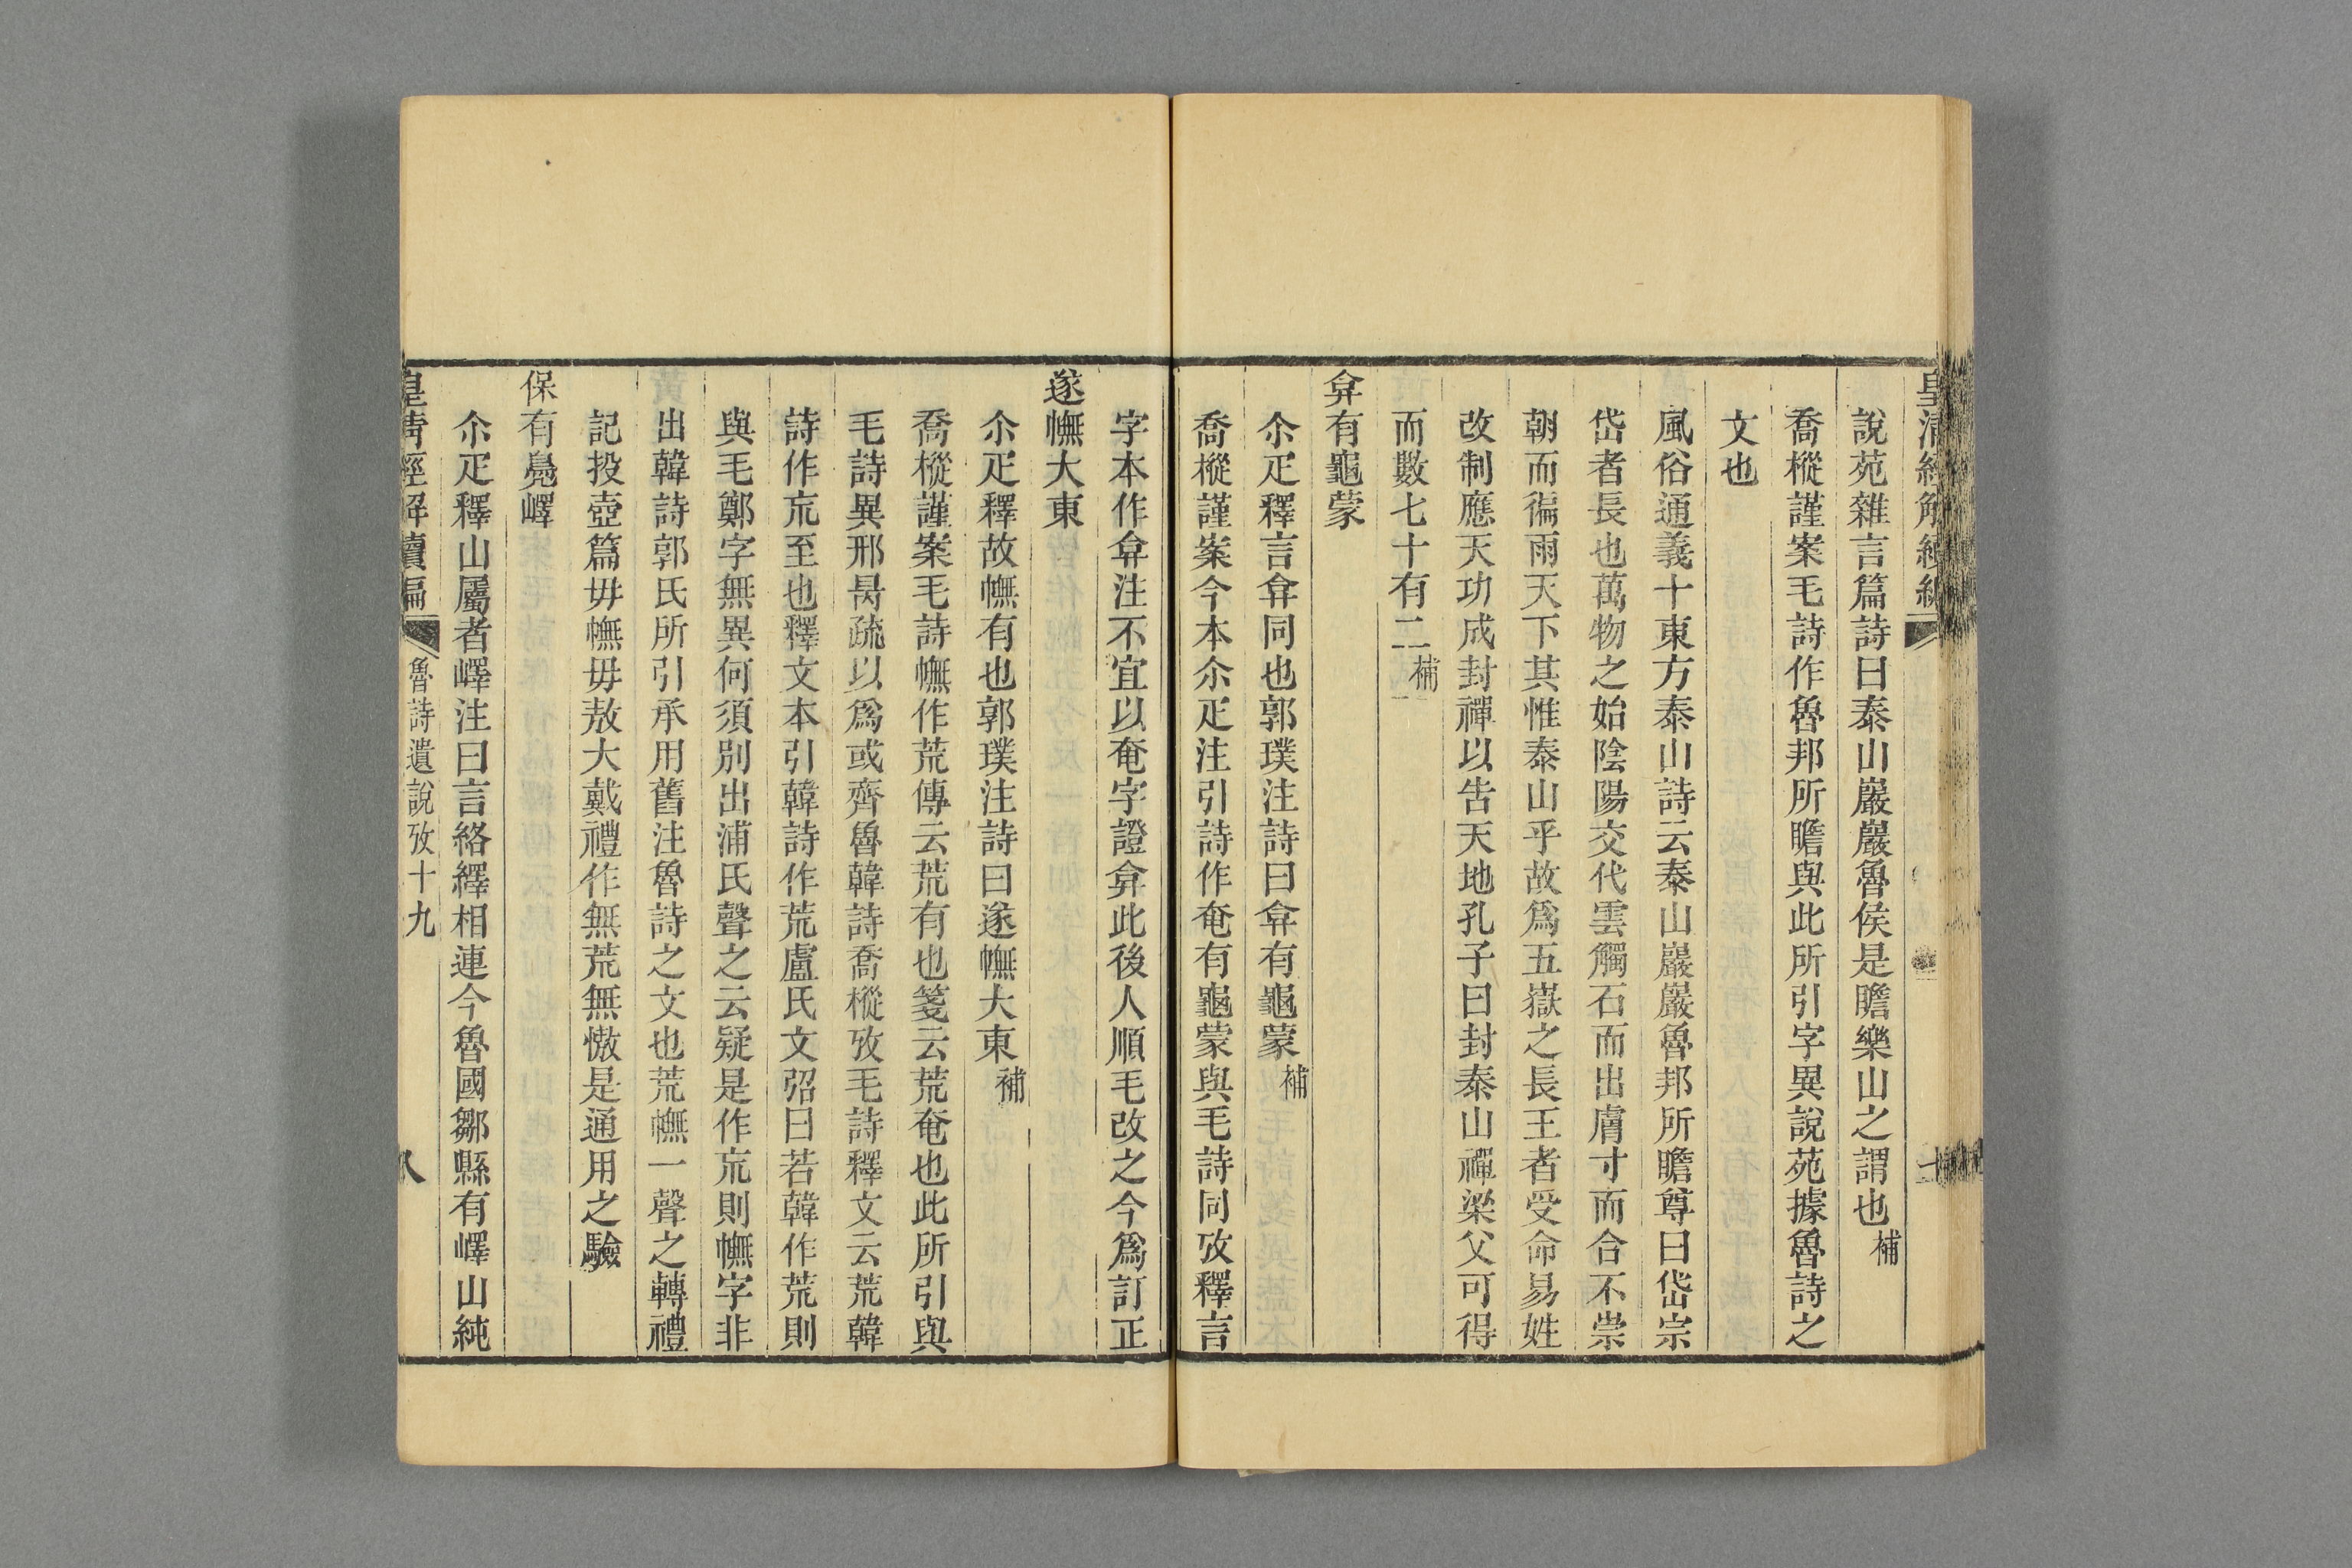 皇清經解續編
說苑雜言篇詩曰泰山巖巖魯侯是瞻樂山之謂也補
喬樅謹案毛詩作魯邦所瞻與此所引字異說苑據魯詩之
文也
風俗通義十東方泰山詩云泰山巖巖魯邦所瞻尊曰岱宗
岱者長也萬物之始陰陽交代雲觸石而出膚寸而合不崇
朝而徧雨天下其惟泰山乎故爲五嶽之長王者受命易姓
改制應天功成封禪以告天地孔子曰封泰山禪梁父可得
而數七十有二補
弇有龜蒙
尒疋釋言弇同也郭璞注詩曰弇有龜蒙補
喬樅謹案今本尒疋注引詩作奄有龜蒙與毛詩同攷釋言
字本作弇注不宜以奄字證弇此後人順毛改之今爲訂正
遂幠大東
尒疋釋故幠有也郭璞注詩曰遂幠大東補
喬樅謹案毛詩幠作荒傳云荒有也箋云荒奄也此所引與
毛詩異邢昺疏以爲或齊魯韓詩喬樅攷毛詩釋文云荒韓
詩作巟至也釋文本引韓詩作荒盧氏文弨曰若韓作荒則
與毛鄭字無異何須別出浦氏聲之云疑是作巟則幠字非
出韓詩郭氏所引承用舊注魯詩之文也荒幠一聲之轉禮
記投壺篇毋幠毋敖大戴禮作無荒無慠是通用之驗
保有鳧嶧
尒疋釋山屬者嶧注曰言絡繹相連今魯國鄒縣有嶧山純
皇清經解續編 魯詩遺說攷十九 八